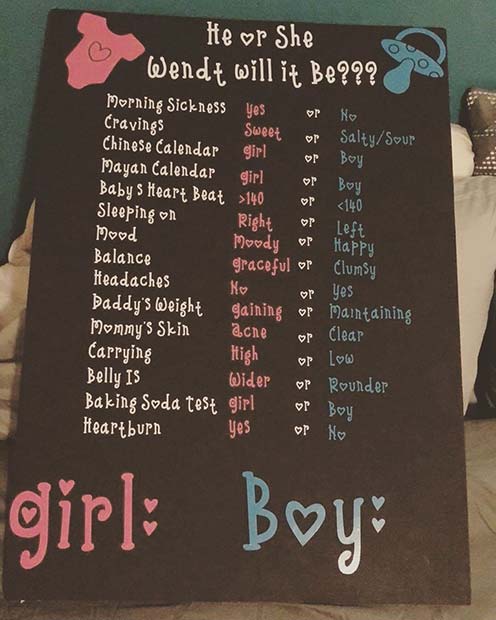 He or She
Wendt will it Be???
Morning Sickness yes or No
Cravings Sweet or Salty/Sour
Chinese Calendar girl or Boy
Mayan Calendar girl or Boy
Baby's Heart Beat >140 or <140
Sleeping on Right or Left
Mood Moody or Happy
Balance graceful or Clumsy
Headaches No or Yes
Daddy's Weight gaining or Maintaining
Mommy's Skin Acne or Clear
Carrying High or Low
Belly Is Wider or Rounder
Baking Soda Test girl or Boy
Heartburn yes or No
girl: Boy: